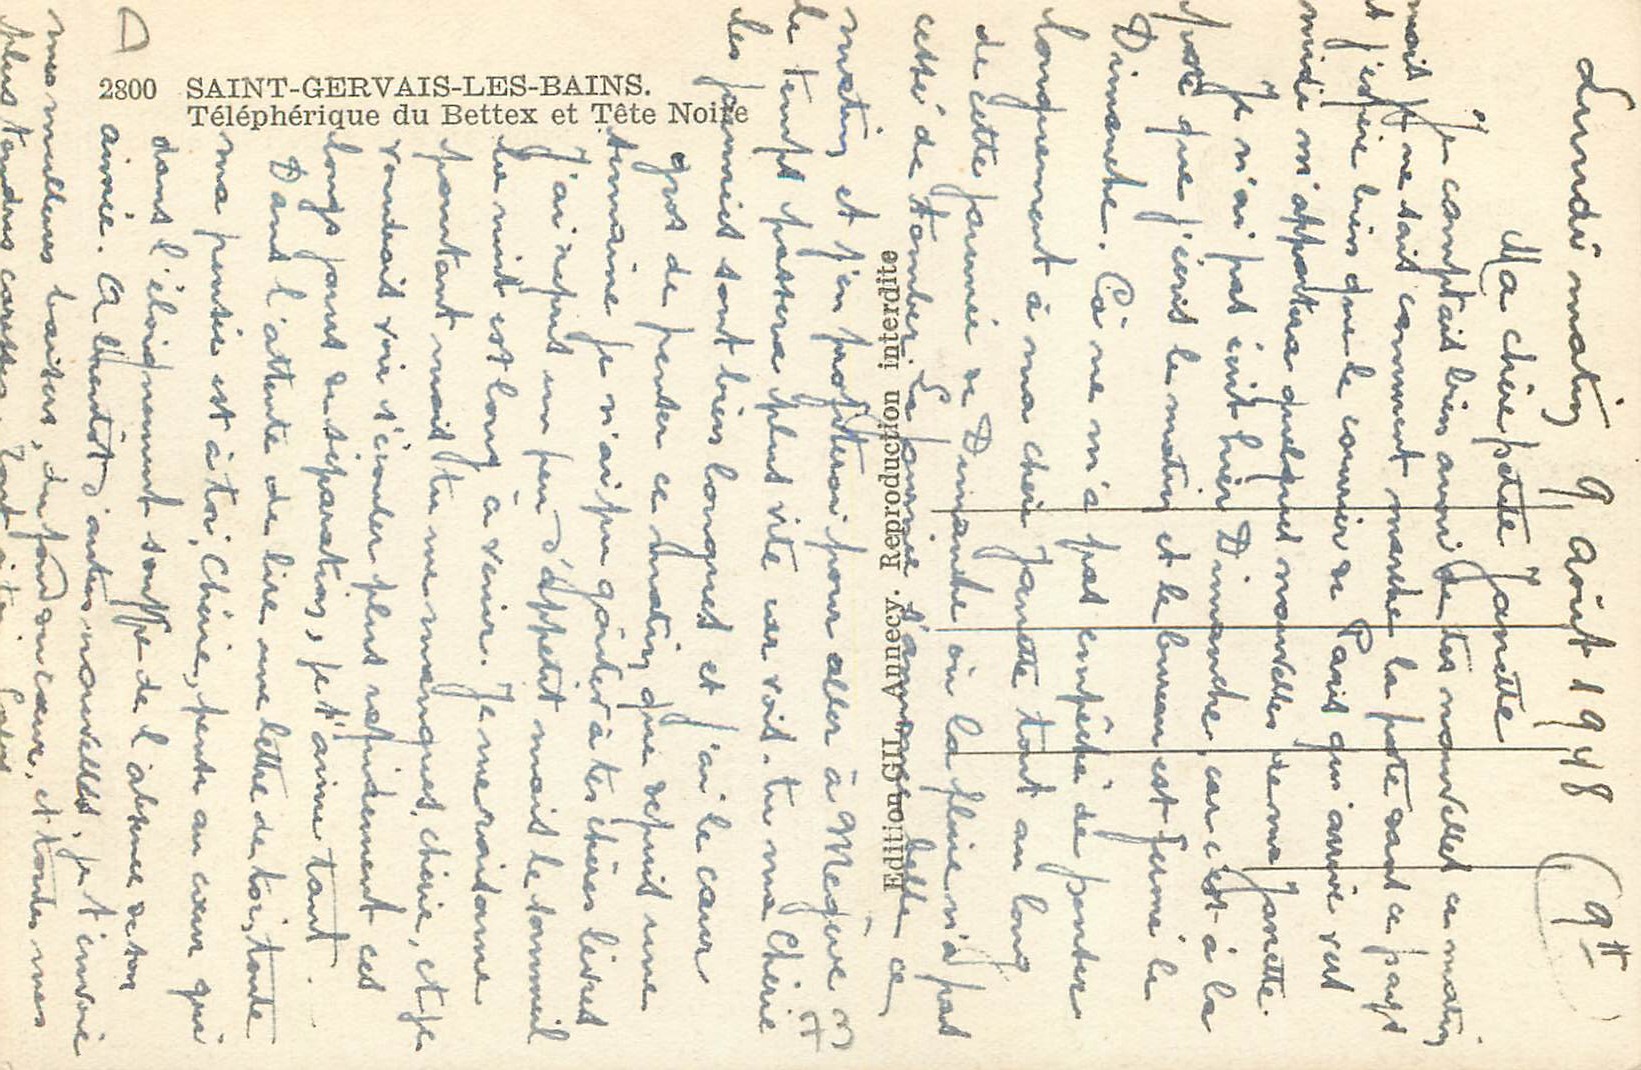 2800 SAINT-GERVAIS-LES-BAINS.
Téléphérique du Bettex et Tête Noire
Edition Gil Annecy. Reproduction interdite
Lundi matin 9 août 1948 (9H
Ma chère petite Janette
Je comptais bien avoir de tes nouvelles ce matin
mais je ne sais comment marche la poste dans ce pays
et j'espère bien que le courrier de Paris qui arrive vers
midi m'apportera quelques nouvelles de ma Janette.
Je n'ai pas écrit hier Dimanche, car c'est à la
poste que j'écris le matin et le bureau est fermé le
Dimanche. Cà ne m'a pas empêché de penser
longuement à ma chère Janette tout au long
de cette journée de Dimanche où la pluie n'a pas
cessé de tomber. La journée s'annonce belle ce
matin et j'en profiterai pour aller à Megève
le temps passera plus vite car vois-tu ma chérie
les journées sont bien longues et j'ai le cœur
gros de penser ce matin que depuis une
semaine je n'ai pu goûter à tes chères lèvres
J'ai repris un peu d'appétit mais le sommeil
la nuit est long à venir. Je me raisonne
pourtant mais tu me manques, chérie, et je
voudrais voir s'écouler plus rapidement ces
longs jours de séparation, je t'aime tant.
Dans l'attente de lire une lettre de toi, toute
ma pensée est à toi, Chérie, pense au cœur qui
dans l'éloignement souffre de l'absence de ton
aimée. A bientôt d'autres nouvelles, je t'envoie
mes meilleurs baisers, du fond du cœur, et toutes mes
plus tendres caresses. Tout à toi.